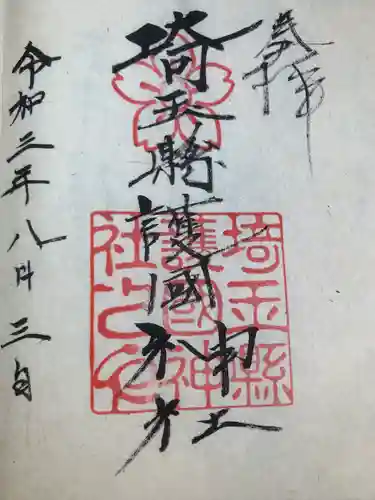 奉拝
埼玉縣護國神社
令和三年八月三日
埼玉縣
護國神
社之印